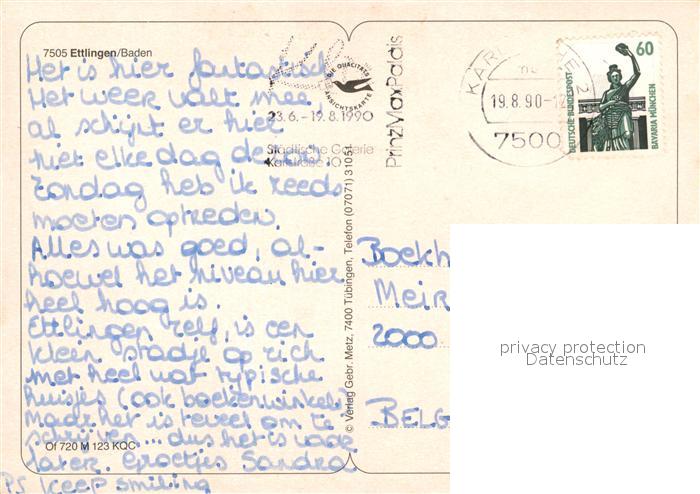 7505 Ettlingen/Baden
Het is hier fantastisch
Het weer valt mee,
al schijnt er hier
niet elke dag de zon.
Zondag heb ik reeds
moeten optreden.
Alles was goed, al-
hoewel het niveau hier
heel hoog is.
Ettlingen zelf, is een
klein stadje op zich
met heel wat typische
huisjes (ook boekenwinkels)
Maar het is teveel om te
schrijven... dus het is voor
later. Groetjes Sandra
PS keep smiling
Of 720 M 123 KQC
DIE QUALITÄTS
ANSICHTSKARTE
23.6. - 19.8.1990
Städtische Galerie
Karlstraße 10
PrinzMaxPalais
© Verlag Gebr. Metz, 7400 Tübingen, Telefon (07071) 31051
19.8.90-
7500
60
DEUTSCHE BUNDESPOST
BAVARIA MÜNCHEN
Boekh
Meir
2000
BELG
privacy protection
Datenschutz